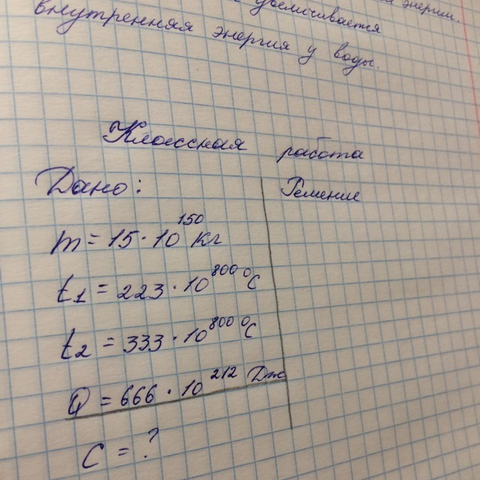 увеличивается энергии.
внутренняя энергия у воды.
Классная работа
Дано: Решение
m = 15 · 10¹⁵⁰ кг
t₁ = 223 · 10⁸⁰⁰ °C
t₂ = 333 · 10⁸⁰⁰ °C
Q = 666 · 10²¹² Дж
C = ?